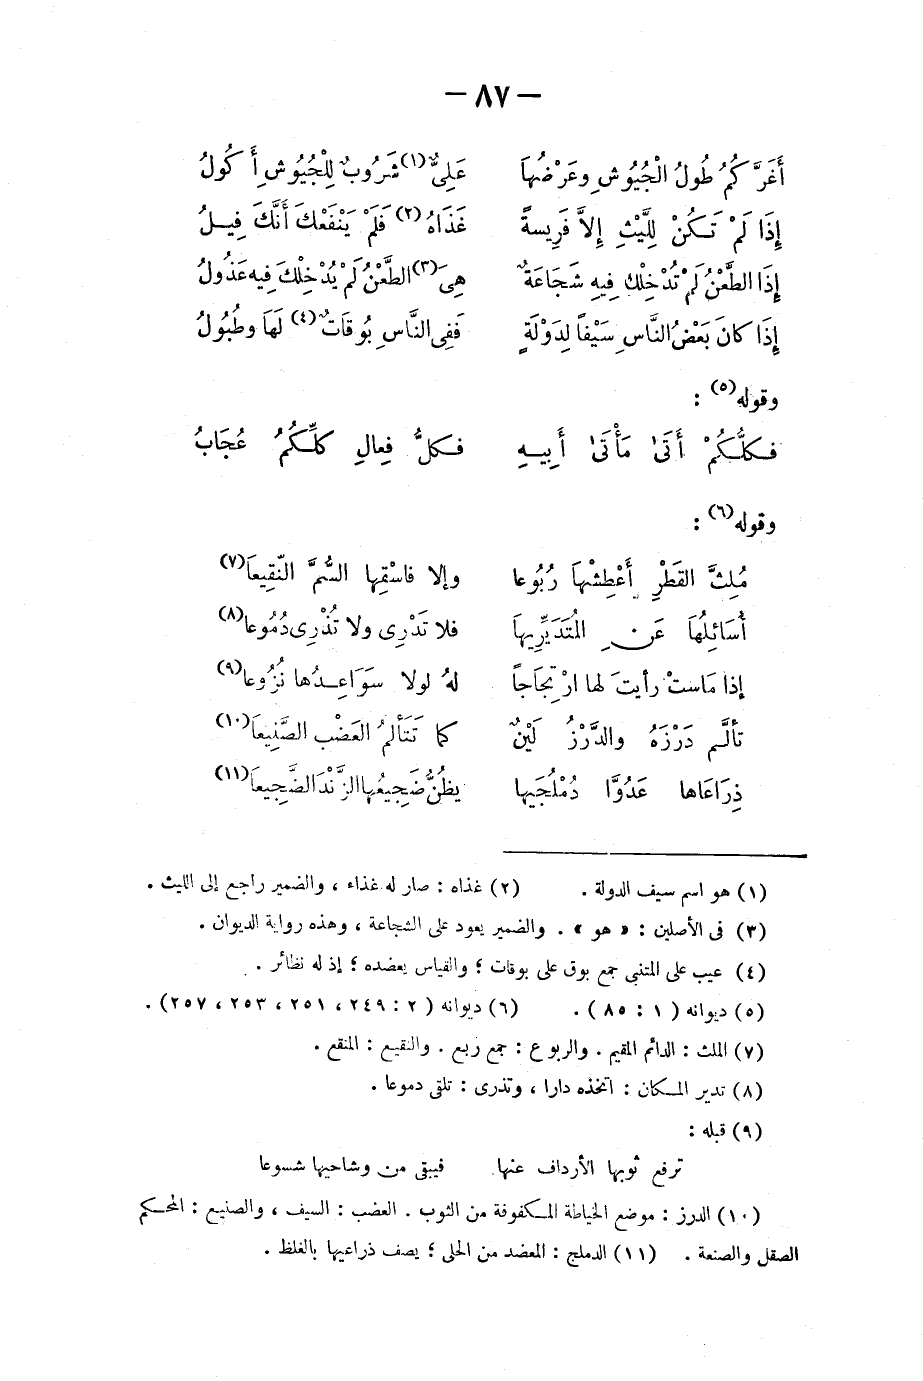 — ٨٧ —
أَغَرَّكُمُ طُولُ الْجُيُوشِ وعَرْضُهَا عَلِىٌّ(١) شَرُوبٌ لِلْجُيُوشِ أَكُولُ
إِذَا لَمْ تَكُنْ لِلَّيْثِ إِلاَّ فَرِيسةً غَذَاهُ(٢) فَلَمْ يَنْفَعْكَ أَنَّكَ فِيلُ
إِذَا الطَّعْنُ لَمْ تُدْخِلْكَ فِيهِ شَجَاعَةٌ هِىَ(٣) الطَّعْنُ لَمْ يُدْخِلْكَ فِيه عَذُولُ
إِذَا كانَ بَعْضُ النَّاسِ سَيْفاً لِدَوْلَةٍ فَفِى النَّاسِ بُوقَاتٌ(٤) لَهَا وطُبُولُ
وقوله(٥) :
فكلُّكُمْ أَتَىٰ مَأْتَىٰ أَبِيهِ فكلُّ فِعالِ كلِّكُمُ عُجَابُ
وقوله(٦) :
مُلِثَّ القَطْرِ أَعْطِشْهَا رُبُوعا وإلا فاسْقِها السُّمَّ النَّقِيعَا(٧)
أُسَائِلُهَا عَنِ المُتَدَيِّرِيهَا فلا تَدْرِى ولا تُذْرِى دُمُوعا(٨)
إذا مَاستْ رأيتَ لها ارْتِجَاجاً لهُ لولا سَوَاعِدُها نزُوعا(٩)
تألَّم دَرْزَهُ والدَّرْزُ لَيْنٌ كما تَتَألمُ العَضْبَ الصَّنِيعَا(١٠)
ذِرَاعَاها عَدُوَّا دُمْلُجَيها يظُنُّ ضَجِيعُها الزَّنْدَ الضَّجِيعاَ(١١)
(١) هو اسم سيف الدولة . (٢) غذاه : صار له غذاء ، والضمير راجع إلى الليث .
(٣) فى الأصلين : « هو » . والضمير يعود على الشجاعة ، وهذه رواية الديوان .
(٤) عيب على المتنبى جمع بوق على بوقات ؛ والقياس يعضده ؛ إذ له نظائر .
(٥) ديوانه ( ١ : ٨٥ ) . (٦) ديوانه ( ٢ : ٢٤٩ ، ٢٥١ ، ٢٥٣ ، ٢٥٧) .
(٧) الملث : الدائم المقيم . والربوع : جمع ربع . والنقيع : المنقع .
(٨) تدير المكان : اتخذه دارا ، وتذرى : تلقى دموعا .
(٩) قبله :
ترفع ثوبها الأرداف عنها فيبقى من وشاحيها شسوعا
(١٠) الدرز : موضع الخياطة المكفوفة من الثوب . العضب : السيف ، والصنيع : المحكم
الصقل والصنعة . (١١) الدملج : المعضد من الحلى ؛ يصف ذراعيها بالغلظ .